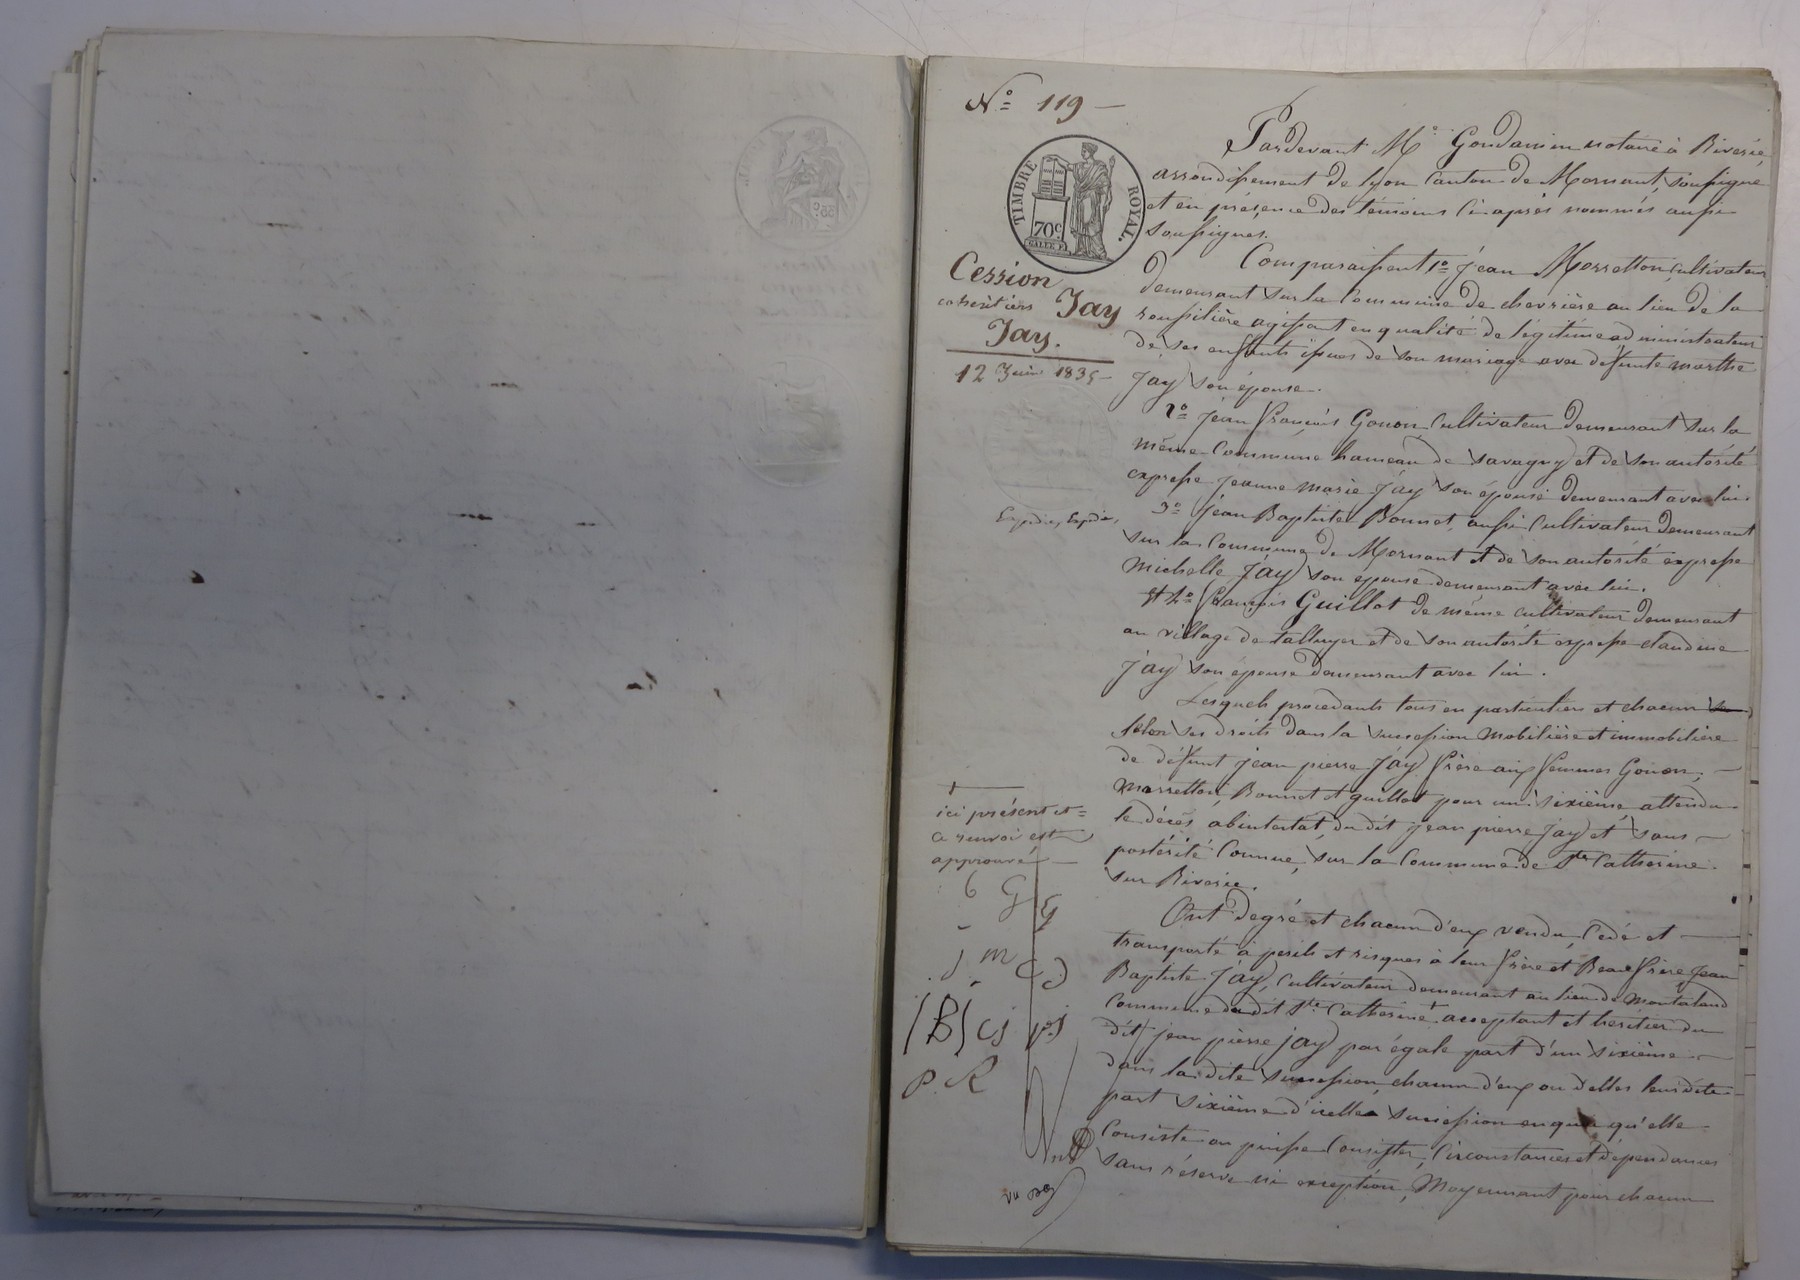 N.º 119 —
TIMBRE ROYAL.
70c
Cession
cohéritiers Jay
Jay.
12 Juin 1835 —
Expédiée, Expédiée,
Pardevant Me Goudarien notaire à Riverie,
arrondissement de Lyon Canton de Mornant, soussigné
et en présence des témoins Ci après nommés aussi
soussignés.
Comparaissent 1º Jean Morretton, cultivateur
demeurant sur la Commune de chevrière au lieu de la
roussilière agissant en qualité de légitime administrateur
de ses enfants issues de son mariage avec défunte marthe
Jay son épouse.
2º Jean françois Gonon Cultivateur demeurant sur la
même Commune hameau de Savagny et de son autorité
expresse Jeanne marie Jay son épouse demeurant avec lui.
3º Jean Baptiste Bonnet, aussi Cultivateur demeurant
sur la Commune de Mornant et de son autorité expresse
Michelle Jay son épouse demeurant avec lui.
Et 4º françois Guillot de même cultivateur demeurant
au village de talluyer et de son autorité expresse claudine
Jay son épouse demeurant avec lui.
Lesquels procédants tous en particulier et chacun
selon ses droits dans la succession mobilière et immobilière
de défunt Jean pierre Jay frère aux femmes Gonon, —
Morretton, Bonnet et guillot pour un sixième, attendu
le décès, abintestat, du dit Jean pierre Jay et sans —
postérité Connue, sur la Commune de Ste Catherine
sur Riverie.
Ont de gré et chacun d'eux vendu, Cédé et —
transporté à perils et risques à leur frère et Beau frère Jean
Baptiste Jay, Cultivateur demeurant au lieu de Montaland
Commune du dit Ste Catherine + acceptant et héritier du
dit Jean pierre Jay par égale part d'un sixième —
dans la dite succession, chacun d'eux ou d'elles leur dite
part sixième d'icelle succession en quoi qu'elle
Consiste ou puisse Consister, Circonstances et dépendances
sans réserve ni exception, Moyennant pour chacun
+
ici présent et =
ce renvoi est
approuvé —
G G
j m
B cj p j
P. R